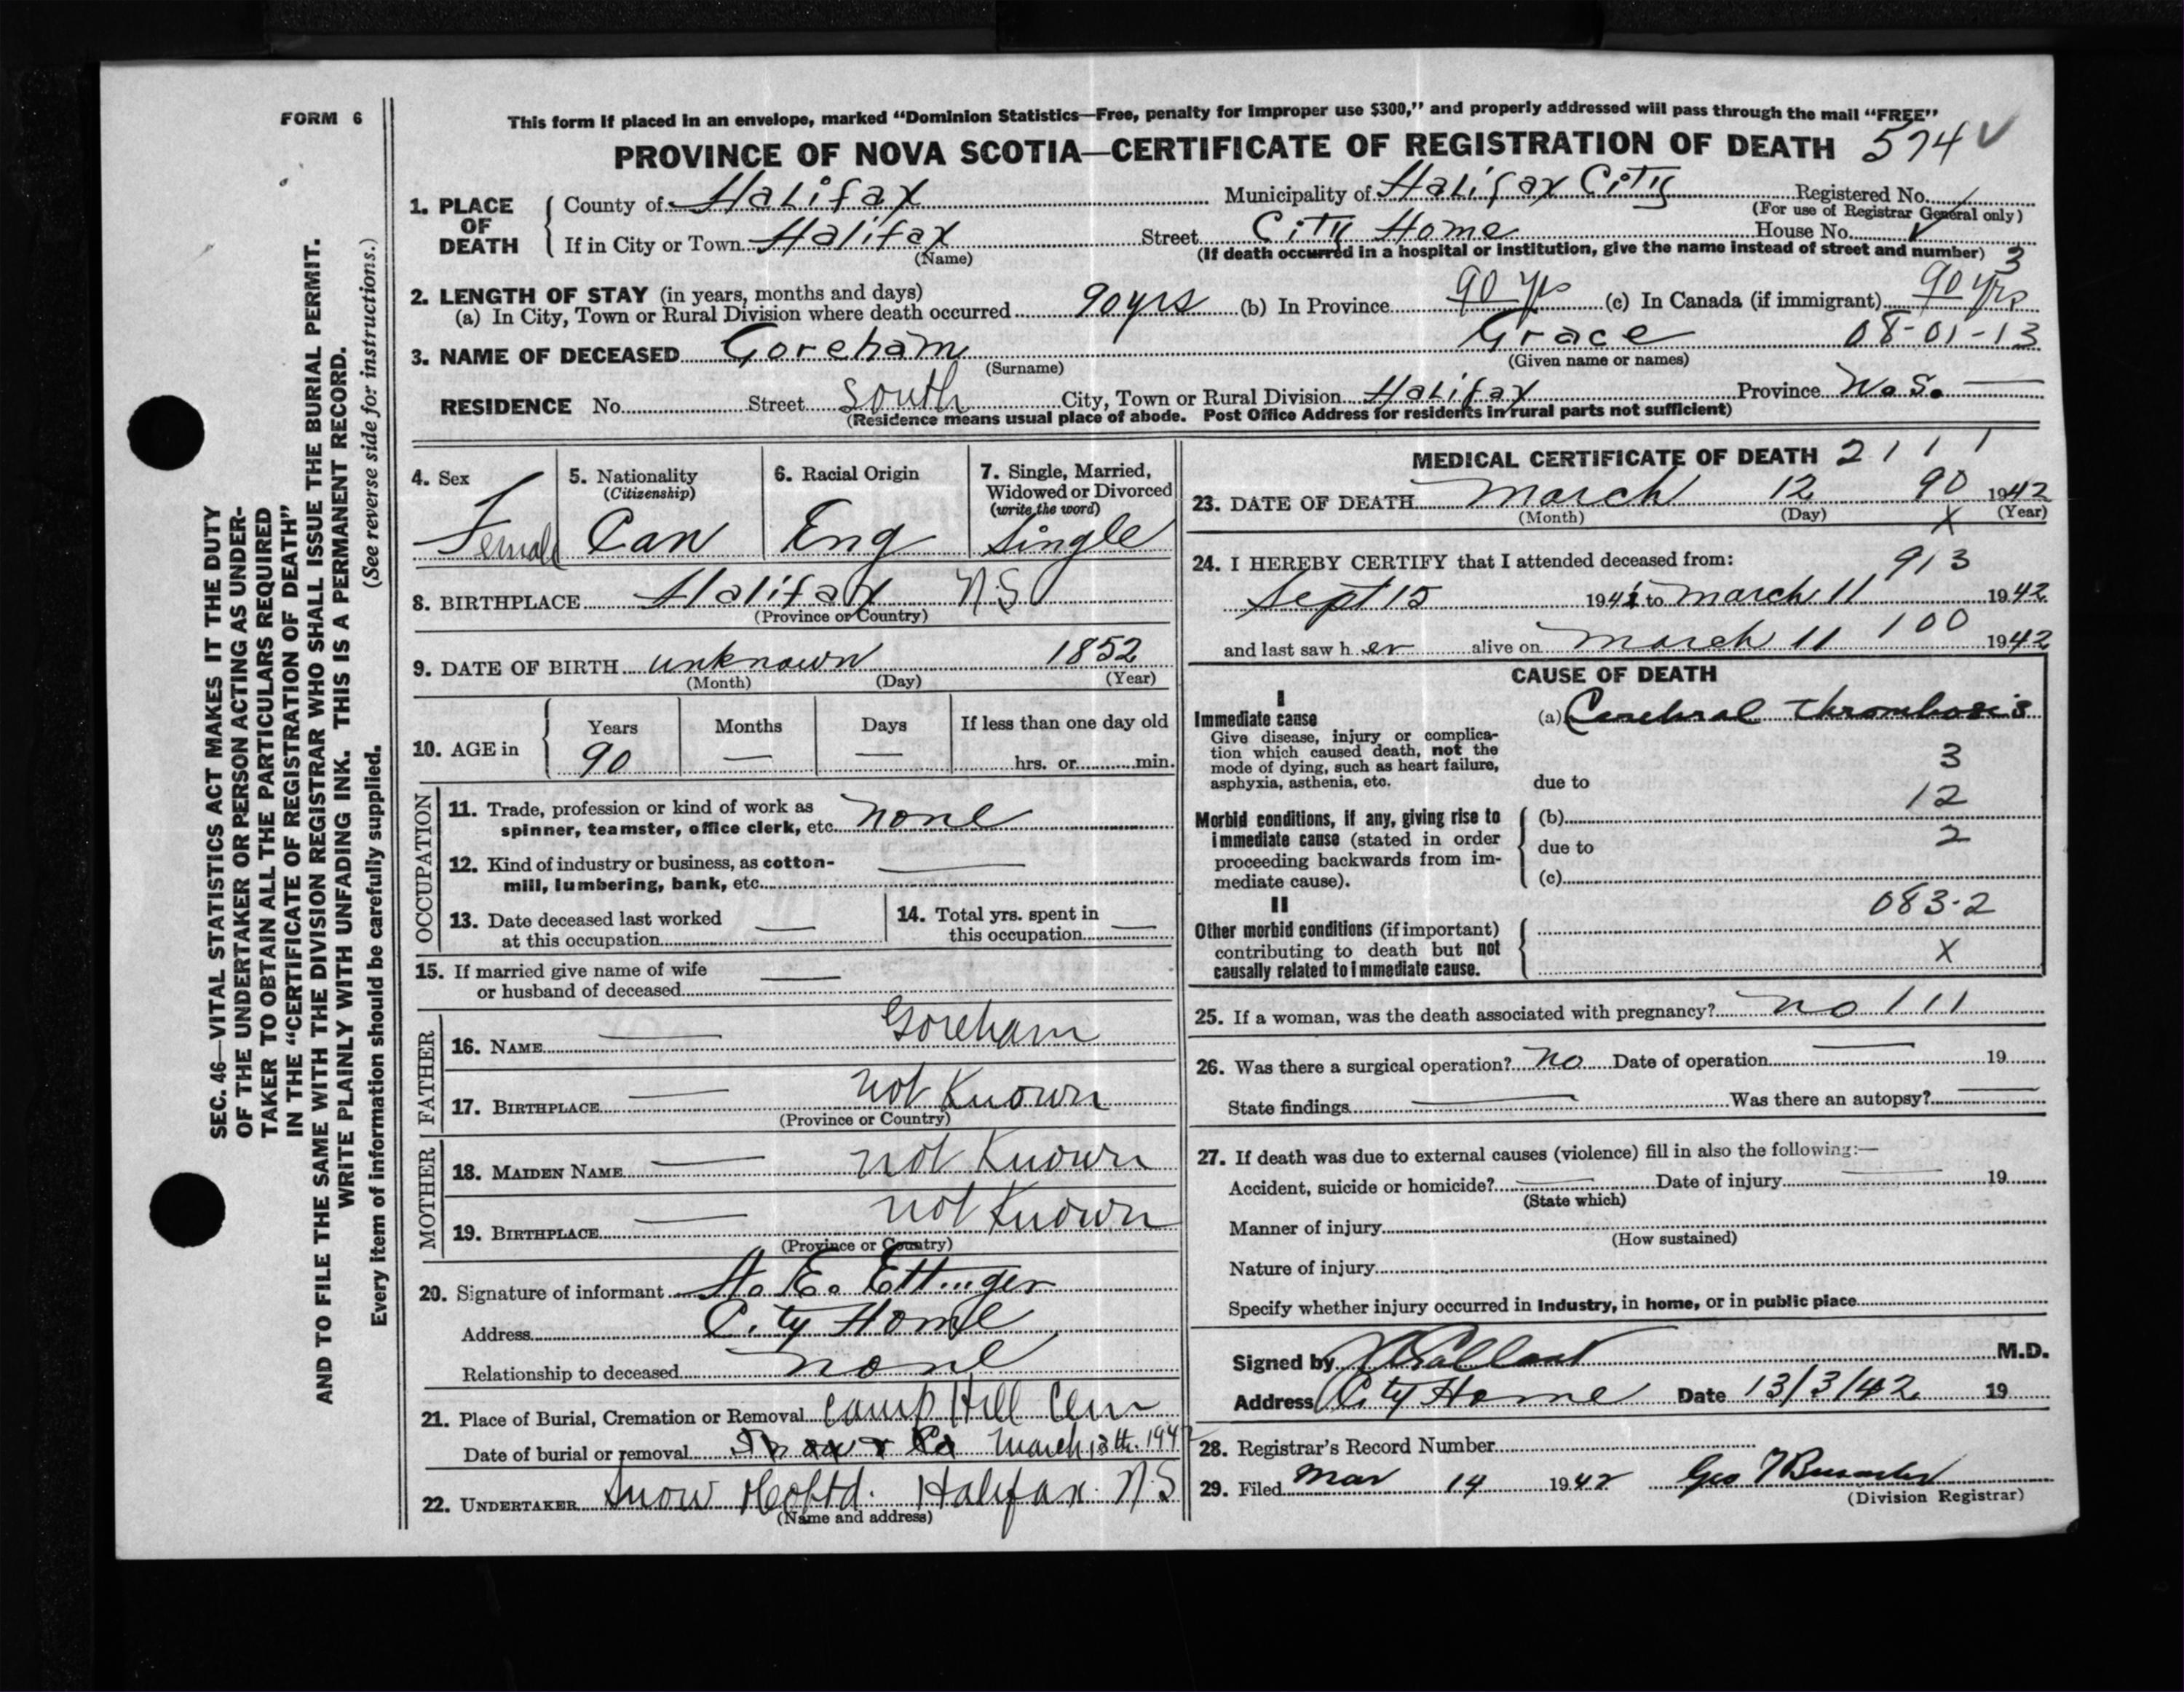 FORM 6
This form if placed in an envelope, marked “Dominion Statistics—Free, penalty for improper use $300,” and properly addressed will pass through the mail “FREE”
PROVINCE OF NOVA SCOTIA—CERTIFICATE OF REGISTRATION OF DEATH 574
SEC. 46—VITAL STATISTICS ACT MAKES IT THE DUTY
OF THE UNDERTAKER OR PERSON ACTING AS UNDER-
TAKER TO OBTAIN ALL THE PARTICULARS REQUIRED
IN THE “CERTIFICATE OF REGISTRATION OF DEATH”
AND TO FILE THE SAME WITH THE DIVISION REGISTRAR WHO SHALL ISSUE THE BURIAL PERMIT.
WRITE PLAINLY WITH UNFADING INK. THIS IS A PERMANENT RECORD.
Every item of information should be carefully supplied. (See reverse side for instructions.)
1. PLACE OF DEATH
County of Halifax Municipality of Halifax City Registered No.
(For use of Registrar General only)
If in City or Town Halifax Street City Home House No.
(Name) (If death occurred in a hospital or institution, give the name instead of street and number) 3
2. LENGTH OF STAY (in years, months and days)
(a) In City, Town or Rural Division where death occurred 90 yrs (b) In Province 90 yrs (c) In Canada (if immigrant) 90 yrs
3. NAME OF DECEASED Goreham Grace 08-01-13
(Surname) (Given name or names)
RESIDENCE No. Street South City, Town or Rural Division Halifax Province N.S.
(Residence means usual place of abode. Post Office Address for residents in rural parts not sufficient)
4. Sex Female
5. Nationality (Citizenship) Can
6. Racial Origin Eng
7. Single, Married, Widowed or Divorced (write the word) Single
8. BIRTHPLACE Halifax N.S
(Province or Country)
9. DATE OF BIRTH unknown 1852
(Month) (Day) (Year)
10. AGE in Years Months Days If less than one day old
90 — — hrs. or min.
OCCUPATION
11. Trade, profession or kind of work as spinner, teamster, office clerk, etc. none
12. Kind of industry or business, as cotton-mill, lumbering, bank, etc. —
13. Date deceased last worked at this occupation —
14. Total yrs. spent in this occupation —
15. If married give name of wife or husband of deceased —
FATHER
16. NAME — Goreham
17. BIRTHPLACE — not Known
(Province or Country)
MOTHER
18. MAIDEN NAME — not Known
19. BIRTHPLACE — not Known
(Province or Country)
20. Signature of informant H. E. Ettinger
Address City Home
Relationship to deceased none
21. Place of Burial, Cremation or Removal Camp Hill Cem
Date of burial or removal March 13th. 194
22. UNDERTAKER Snow & Co Ltd. Halifax N.S
(Name and address)
MEDICAL CERTIFICATE OF DEATH 2 1 1 1
23. DATE OF DEATH March 12 90 1942
(Month) (Day) X (Year)
24. I HEREBY CERTIFY that I attended deceased from: 913
Sept 15 1941 to March 11 1942
and last saw her alive on March 11 100 1942
CAUSE OF DEATH
I
Immediate cause
Give disease, injury or complica-
tion which caused death, not the
mode of dying, such as heart failure,
asphyxia, asthenia, etc.
(a) Cerebral thrombosis
3
due to
12
Morbid conditions, if any, giving rise to
immediate cause (stated in order
proceeding backwards from im-
mediate cause).
(b)
due to 2
(c)
II 083-2
Other morbid conditions (if important)
contributing to death but not
causally related to immediate cause.
X
25. If a woman, was the death associated with pregnancy? no 111
26. Was there a surgical operation? no Date of operation — 19
State findings — Was there an autopsy? —
27. If death was due to external causes (violence) fill in also the following:—
Accident, suicide or homicide? — Date of injury — 19
(State which)
Manner of injury
(How sustained)
Nature of injury
Specify whether injury occurred in industry, in home, or in public place
Signed by M.D.
Address City Home Date 13/3/42 19
28. Registrar's Record Number
29. Filed Mar 14 1942 Geo
(Division Registrar)